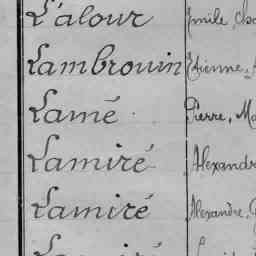 L'alour Emile,
Lambrouin Etienne,
Lamé Pierre, Ma
Lamiré Alexandr
Lamiré Alexandre,